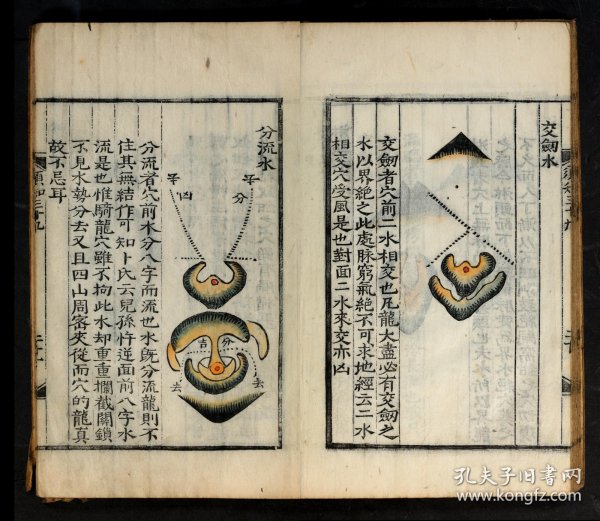 交劍水
交劍者穴前二水相交也凡龍大盡必有交劍之
水以界絕之此處脉窮氣絕不可求地經云二水
相交穴受風是也對面二水來交亦凶
分流水
平
凶
平
分
分
吉
去
去
分流者穴前水分八字而流也水旣分流龍則不
住其無結作可知卜氏云兒孫忤逆面前八字水
流是也惟騎龍穴雖不拘此水却重重攔截關鎖
不見水勢分去又且四山周密夾從而穴的龍真
故不忌耳
須知三十九
孔夫子旧书网
www.kongfz.com